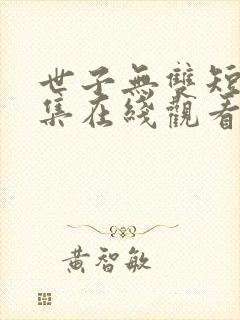 世子無雙短
集在綫觀看
黃智敏